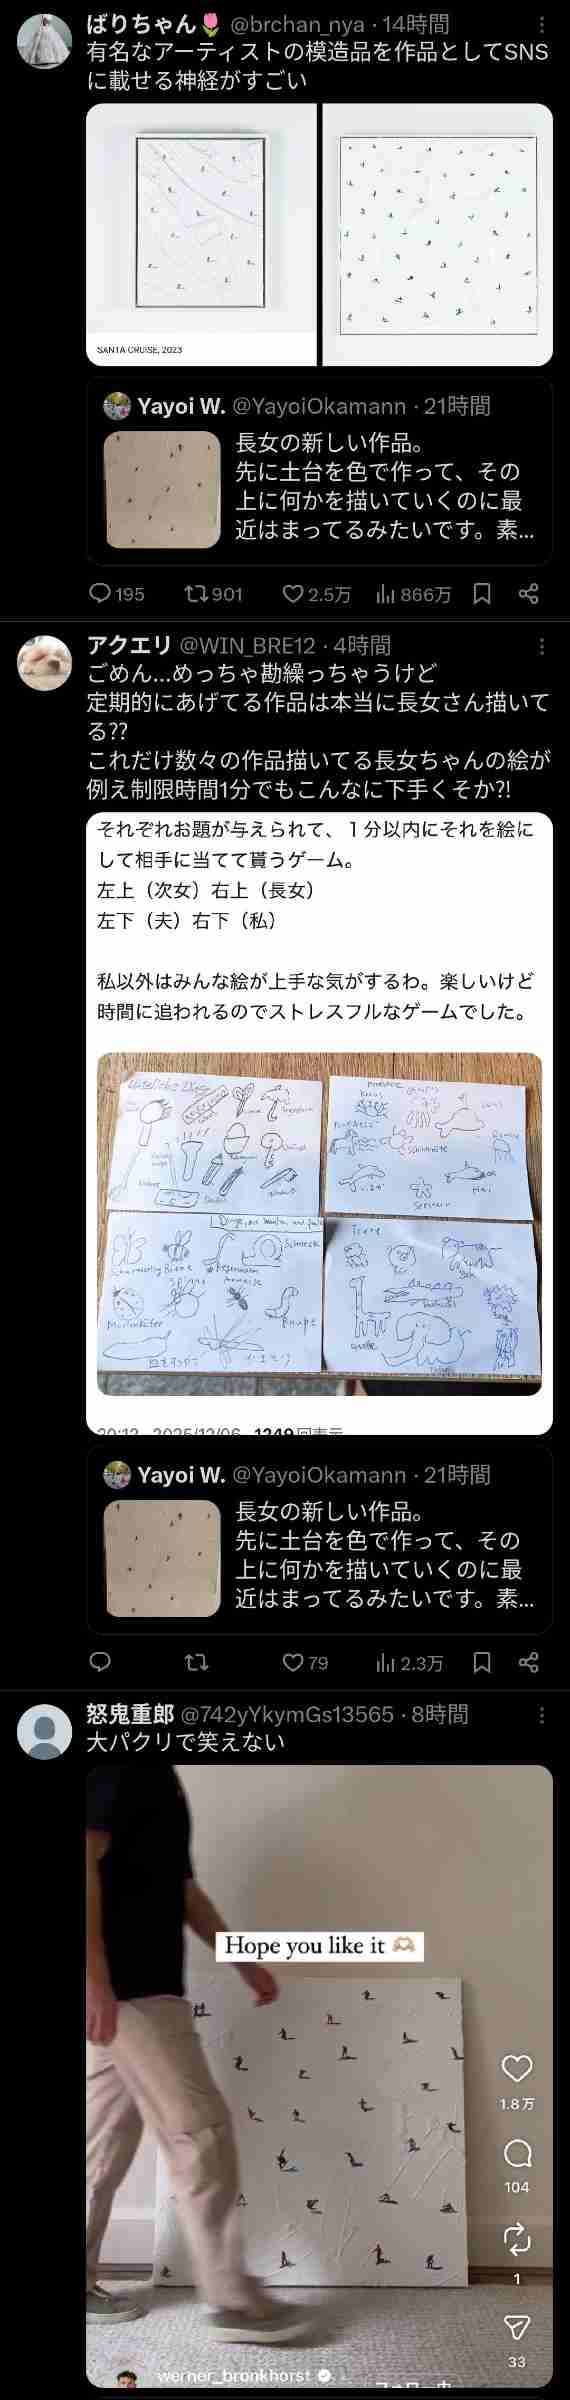 ばりちゃん🌷 @brchan_nya · 14時間
有名なアーティストの模造品を作品としてSNS
に載せる神経がすごい
SANTA CRUISE, 2023
Yayoi W. @YayoiOkamann · 21時間
長女の新しい作品。
先に土台を色で作って、その
上に何かを描いていくのに最
近はまってるみたいです。素...
195 901 2.5万 866万
アクエリ @WIN_BRE12 · 4時間
ごめん...めっちゃ勘繰っちゃうけど
定期的にあげてる作品は本当に長女さん描いて
る??
これだけ数々の作品描いてる長女ちゃんの絵が
例え制限時間1分でもこんなに下手くそか?!
それぞれお題が与えられて、１分以内にそれを絵に
して相手に当てて貰うゲーム。
左上（次女）右上（長女）
左下（夫）右下（私）
私以外はみんな絵が上手な気がするわ。楽しいけど
時間に追われるのでストレスフルなゲームでした。
Schnecke
Schmetterling Biene
Marienkäfer
Raupe
Tiere
Yayoi W. @YayoiOkamann · 21時間
長女の新しい作品。
先に土台を色で作って、その
上に何かを描いていくのに最
近はまってるみたいです。素...
79 2.3万
怒鬼重郎 @742yYkymGs13565 · 8時間
大パクリで笑えない
Hope you like it 🫶🏼
1.8万
104
1
33
werner_bronkhorst